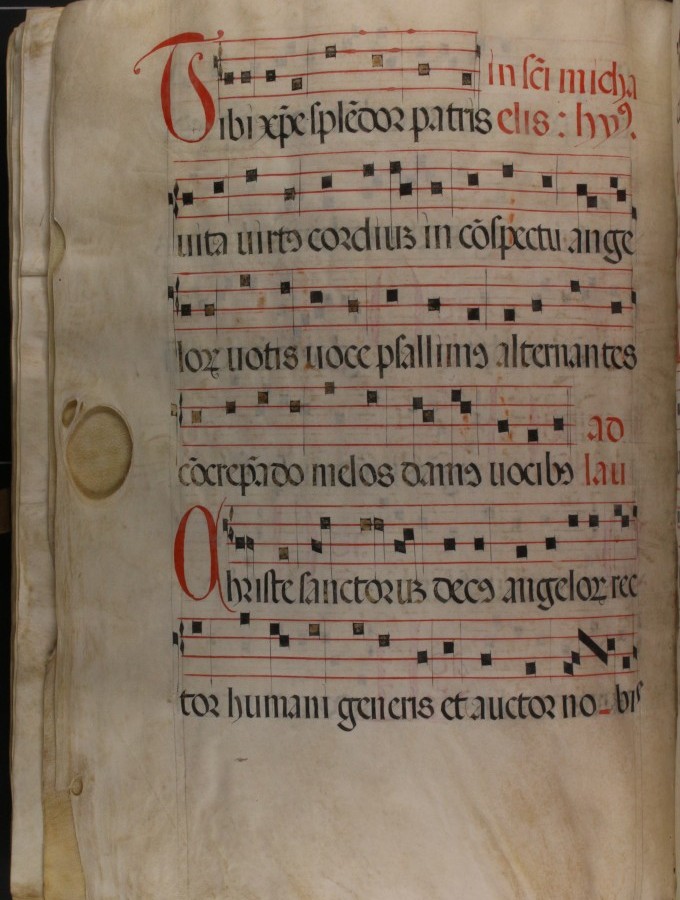 in sc̄i micha
Tibi xp̄e splēdor patris elis : hyꝰ.
uita uirtꝰ cordiuꝫ in cōspectu ange
loꝝ uotis uoce psallimꝰ alternantes
cōcrepādo melos damꝰ uocibꝰ ad
lau
Christe sanctoruꝫ decꝰ angeloꝝ rec
tor humani generis et auctor no-bis